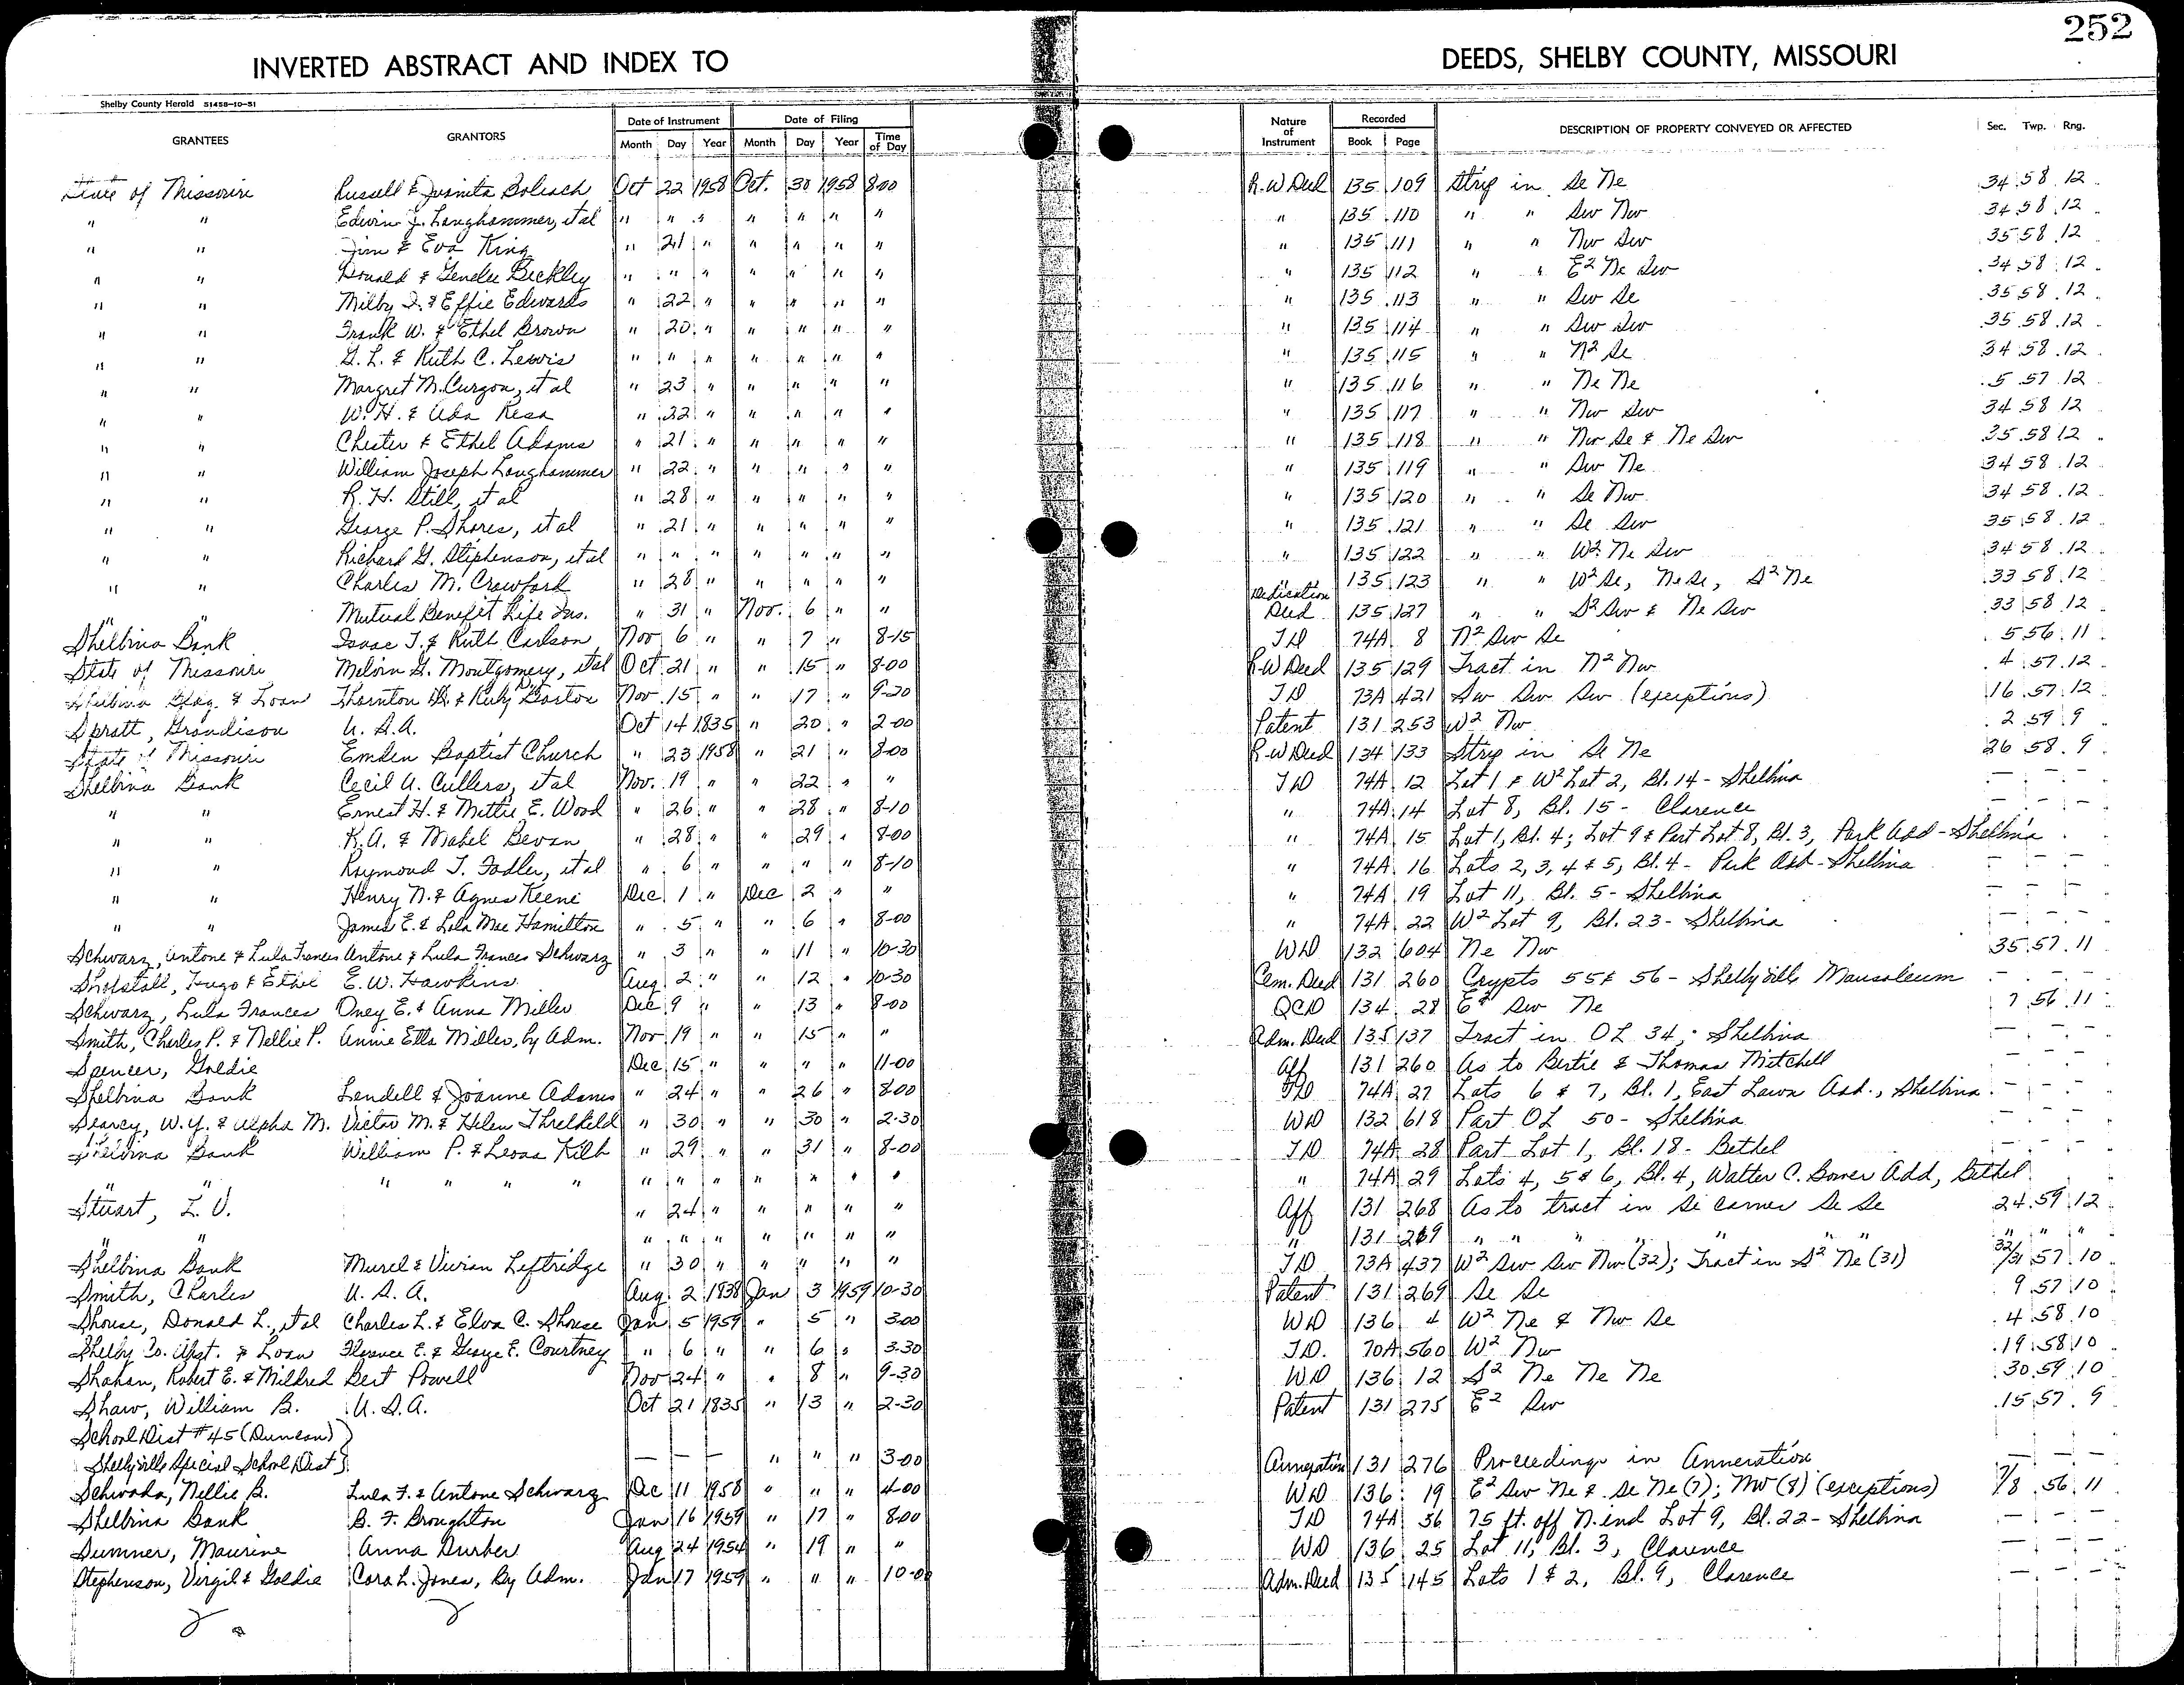 252
INVERTED ABSTRACT AND INDEX TO DEEDS, SHELBY COUNTY, MISSOURI
Shelby County Herald 51458-10-51
GRANTEES GRANTORS Date of Instrument Date of Filing Nature of Instrument Recorded DESCRIPTION OF PROPERTY CONVEYED OR AFFECTED Sec. Twp. Rng.
Month Day Year Month Day Year Time of Day Book Page
State of Missouri Russell & Juanita Boleach Oct 22 1958 Oct. 30 1958 8-00 R.W Deed 135 109 Strip in Se Ne 34 58 12
" " Edwin J. Langhammer, et al " " " " " " " " 135 110 " " Sw Nw 34 58 12
" " Jim & Eva King " 21 " " " " " " 135 111 " " Nw Sw 35 58 12
" " Donald & Beckley " " " " " " " " 135 112 " " E² Ne Sw 34 58 12
" " Milby & Effie Edwards " 22 " " " " " " 135 113 " " Sw Se 35 58 12
" " Frank W. & Ethel Brown " 20 " " " " " " 135 114 " " Sw Sw 35 58 12
" " G. L. & Ruth C. Lewis " " " " " " " " 135 115 " " N² Se 34 58 12
" " Margret M. Curgon, et al " 23 " " " " " " 135 116 " " Ne Ne 5 57 12
" " W. H. & Ada Resa " 22 " " " " " " 135 117 " " Nw Sw 34 58 12
" " Chester & Ethel Adams " 21 " " " " " " 135 118 " " Nw Se & Ne Sw 35 58 12
" " William Joseph Langhammer " 22 " " " " " " 135 119 " " Sw Ne 34 58 12
" " R. H. Still, et al " 28 " " " " " " 135 120 " " Se Nw 34 58 12
" " George P. Shores, et al " 21 " " " " " " 135 121 " " Se Sw 35 58 12
" " Richard G. Stephenson, et al " " " " " " " " 135 122 " " W² Ne Sw 34 58 12
" " Charles M. Crawford " 28 " " " " " 135 123 " " W² Se, Ne Se, S² Ne 33 58 12
" " Mutual Benefit Life Ins. " 31 " Nov. 6 " " Dedication Deed 135 127 " " S² Sw & Ne Sw 33 58 12
Shelbina Bank Isaac T. & Ruth Carlson Nov 6 " " 7 " 8-15 TD 74A 8 N² Sw Se 5 56 11
State of Missouri Melvin G. Montgomery, et al Oct 21 " " 15 " 8-00 R-W Deed 135 129 Tract in N² Nw 4 57 12
Shelbina Bldg. & Loan Thornton & Ruby Gorton Nov 15 " " 17 " 9-20 TD 73A 421 Sw Sw Sw (exceptions) 16 57 12
Spratt, Grandison U. S. A. Oct 14 1835 " 20 " 2-00 Patent 131 253 W² Nw 2 59 9
State of Missouri Emden Baptist Church " 23 1958 " 21 " 8-00 R-W Deed 134 133 Strip in Se Ne 26 58 9
Shelbina Bank Cecil A. Cullers, et al Nov. 19 " " 22 " " TD 74A 12 Lot 1 & W² Lot 2, Bl. 14 - Shelbina — — —
" " Ernest H. & Mettie E. Wood " 26 " " 28 " 8-10 " 74A 14 Lot 8, Bl. 15 - Clarence — — —
" " R. A. & Mabel Bevan " 28 " " 29 " 8-00 " 74A 15 Lot 1, Bl. 4; Lot 9 & Part Lot 8, Bl. 3, Park Add - Shelbina
" " Raymond T. Fadler, et al " 6 " " " " 8-10 " 74A 16 Lots 2, 3, 4 & 5, Bl. 4 - Park Add - Shelbina — — —
" " Henry N. & Agnes Keene Dec 1 " Dec 2 " " " 74A 19 Lot 11, Bl. 5 - Shelbina — — —
" " James E. & Lola Mae Hamilton " 5 " " 6 " 8-00 " 74A 22 W² Lot 9, Bl. 23 - Shelbina — — —
Schwarz, Antone & Lula Frances Antone & Lula Frances Schwarz " 3 " 11 " 10-30 WD 132 604 Ne Nw 35 57 11
Shofstall, Hugo & Ethel E. W. Hawkins Aug 2 " " 12 " 10-30 Cem. Deed 131 260 Crypts 55 & 56 - Shelbyville Mausoleum — — —
Schwarz, Lula Frances Oney E. & Anna Miller Dec 9 " " 13 " 8-00 QCD 134 28 E² Sw Ne 7 56 11
Smith, Charles P. & Nellie P. Annie Etta Miller, by Adm. Nov 19 " " 15 " " Adm. Deed 135 137 Tract in OL 34; Shelbina — — —
Spencer, Goldie Dec 15 " " " " 11-00 Aff 131 260 As to Bertie & Thomas Mitchell — — —
Shelbina Bank Lendell & Joanne Adams " 24 " " 26 " 8-00 TD 74A 27 Lots 6 & 7, Bl. 1, East Lawn Add., Shelbina — — —
Searcy, W. Y. & Alpha M. Victor M. & Helen Threlkeld " 30 " " 30 " 2-30 WD 132 618 Part OL 50 - Shelbina — — —
Shelbina Bank William P. & Leora Kilb " 29 " " 31 " 8-00 TD 74A 28 Part Lot 1, Bl. 18 - Bethel — — —
" " " " " " " " " " " " " " 74A 29 Lots 4, 5 & 6, Bl. 4, Walter C. Bower Add, Bethel
Stuart, L. V. " 24 " " " " " Aff 131 268 As to tract in Se corner Se Se 24 59 12
" " " " " " " " " " 131 269 " " " " " " " "
Shelbina Bank Murel & Vivian Leftridge " 30 " " " " " TD 73A 437 W² Sw Sw Nw (32); Tract in S² Ne (31) 32/31 57 10
Smith, Charles U. S. A. Aug 2 1838 Jan 3 1959 10-30 Patent 131 269 Se Se 9 57 10
Shouse, Donald L., et al Charles L. & Elva C. Shouse Jan 5 1959 " 5 " 3-00 WD 136 4 W² Ne & Nw Se 4 58 10
Shelby Co. & Loan Florence E. & George E. Courtney " 6 " " 6 " 3-30 TD. 70A 560 W² Nw 19 58 10
Shahan, Robert E. & Mildred Bert Powell Nov 24 " " 8 " 9-30 WD 136 12 S² Ne Ne Ne 30 59 10
Shaw, William B. U. S. A. Oct 21 1835 " 13 " 2-30 Patent 131 275 E² Sw 15 57 9
School Dist #45 (Duncan) }
Shelbyville Special School Dist } — — — " " " 3-00 Annexation 131 276 Proceedings in Annexation — — —
Schwada, Nellie B. Lula F. & Antone Schwarz Dec 11 1958 " " " 4-00 WD 136 19 E² Sw Ne & Se Ne (7); NW (8) (exceptions) 7/8 56 11
Shelbina Bank B. F. Broughton Jan 16 1959 " 17 " 8-00 TD 74A 36 75 ft. off N. end Lot 9, Bl. 22 - Shelbina — — —
Sumner, Maurine Anna Durber Aug 24 1954 " 19 " " WD 136 25 Lot 11, Bl. 3, Clarence — — —
Stephenson, Virgil & Goldie Cora L. Jones, By Adm. Jan 17 1959 " " " 10-00 Adm. Deed 135 145 Lots 1 & 2, Bl. 9, Clarence — — —